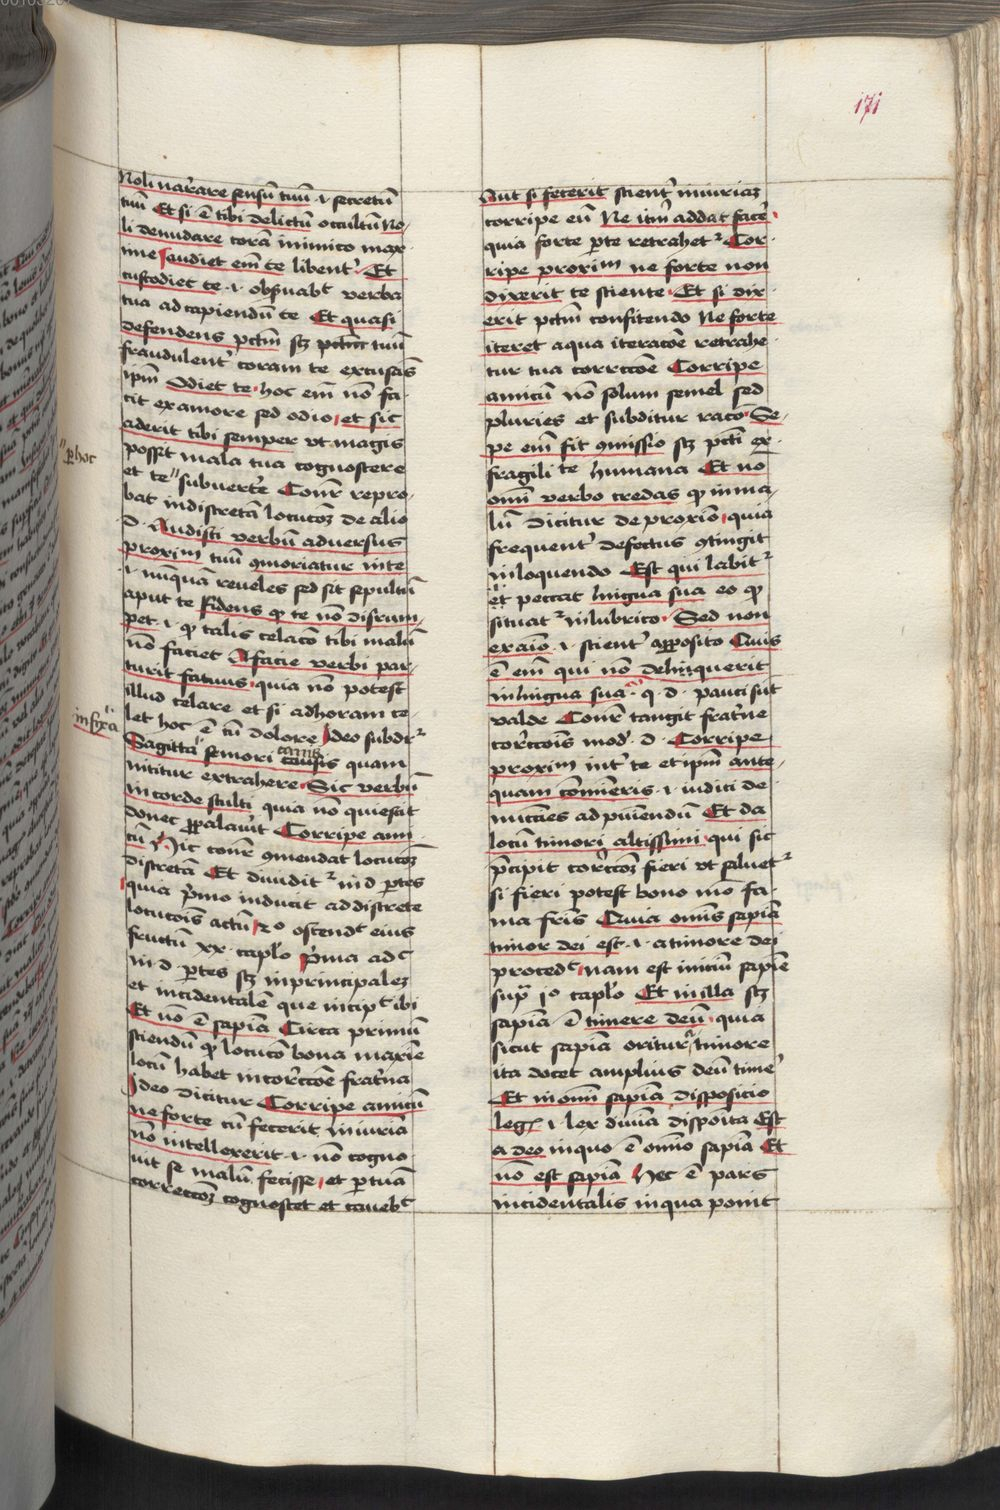 171
Noli nar̃rare sensũ tuũ .i. secretũ
tuũ Et si ẽ tibi delictũ occultũ No-
li denudare corã inimico max-
ime audiet em̃ te libent᷑ Et
custodiet te .i. obs̃uabt̃ verba
tua ad capiendũ te Et quasi
defendens pctm̃ sꝫ tuũ
fraudulent᷑ coram te excusãs
ip̃m Odiet te hoc em̃ nõ fa-
cit ex amore sed odio et sic
aderit tibi semper vt magis
possꝫ mala tua cognoscere
ꝑ hoc
et te subuert᷑e Cõnr̃ repro-
bat indiscretã locucõꝫ de alio
d. Audisti verbũ aduersus
proximũ tuũ ꝯmoriatur in te
.i. nũquã reueles sed sit sepultũ
aput te fidens ꝙ te nõ disrum-
pet .i. ꝙ talis celacõ tibi malũ
nõ faciet A facie verbi par-
turit fatuus quia nõ potest
illud celare et si ad horam ce-
let hoc ẽ cũ dolore Ideo subdr̃
infixa
Sagitta femori carnis quam
nititur extrahere Sic verbũ
in corde stulti quia nõ quiescit
donec ꝓpalauit Corripe ami-
cũ Hic cõnr̃ ꝯmendat locucõꝫ
discretã Et diuidit᷑ in d ꝑtes
quia p̃mo inducit ad discrete
locucõis actũ 2o ostendt̃ eius
fructũ xx. caplõ p̃ma adc̃
in d ꝑtes sꝫ in principalẽ
et incidentalẽ que incipt̃ ibi
Et nõ ẽ sapiã Circa primũ
sciendũ ꝙ locucõ bona maxĩe
locũ habet in correccõe frat᷑na
Ideo dicitur Corripe amicũ
ne forte cũ fecerit iniuriã
nõ intellexerit .i. nõ cogno-
uit se malũ fecisse et ꝑ tuã
correccõꝫ cognoscet et cauebt̃
Aut si fecerit scient᷑ iniuriaꝫ
corripe eũ Ne itm̃ addat face᷑
quia forte ꝑ te retrahet᷑ Cor-
ripe proximũ ne forte non
dixerit te sciente Et si dix-
erit pctm̃ confitendo Ne forte
iteret a qua iteracõe retrahe-
tur tua correccõe Corripe
amicũ nõ solum semel sed
pluries et subditur racõ Se-
pe em̃ fit ꝯmissio sꝫ pcti ex
fragilitate humana Et nõ
omĩ verbo credas ꝙ in ma-
lũ dicitur de proxiõ quia
frequent᷑ defectus ꝯtingit
in loquendo Est qui labit᷑
et peccat lingua sua eo ꝙ
situat᷑ in lubrico Sed non
ex aiõ .i. scient᷑ apposito Quis
ẽ em̃ qui nõ delinquerit
in lingua sua q. d. pauci sũt
valde Cõnr̃ tangit frat᷑ne
correccõis modũ d. Corripe
proximũ int᷑ te et ip̃m ante-
quam cõmineris .i. indici de-
nuccies ad puniendũ Et da
locũ timori altissimi qui sic
p̃cipit correccõꝫ fieri vt saluet᷑
si fieri potest bono mõ fa-
ma fr̃is Quia omĩs sapiã
timor dei est .i. a timore dei
procedt̃ nam est iniciũ sapiẽ
sup̃ io caplõ Et in illa sꝫ
sapiã ẽ timere deũ quia
sicut sapiã oritur a timore
ita docet amplius deũ time᷑
Et in omĩ sapiã dispposicio
legꝭ .i. lex diuiã disposita Est
a deo in quo ẽ omĩo sapiã Et
nõ est sapiã Hec ẽ pars
incidentalis in qua ponit